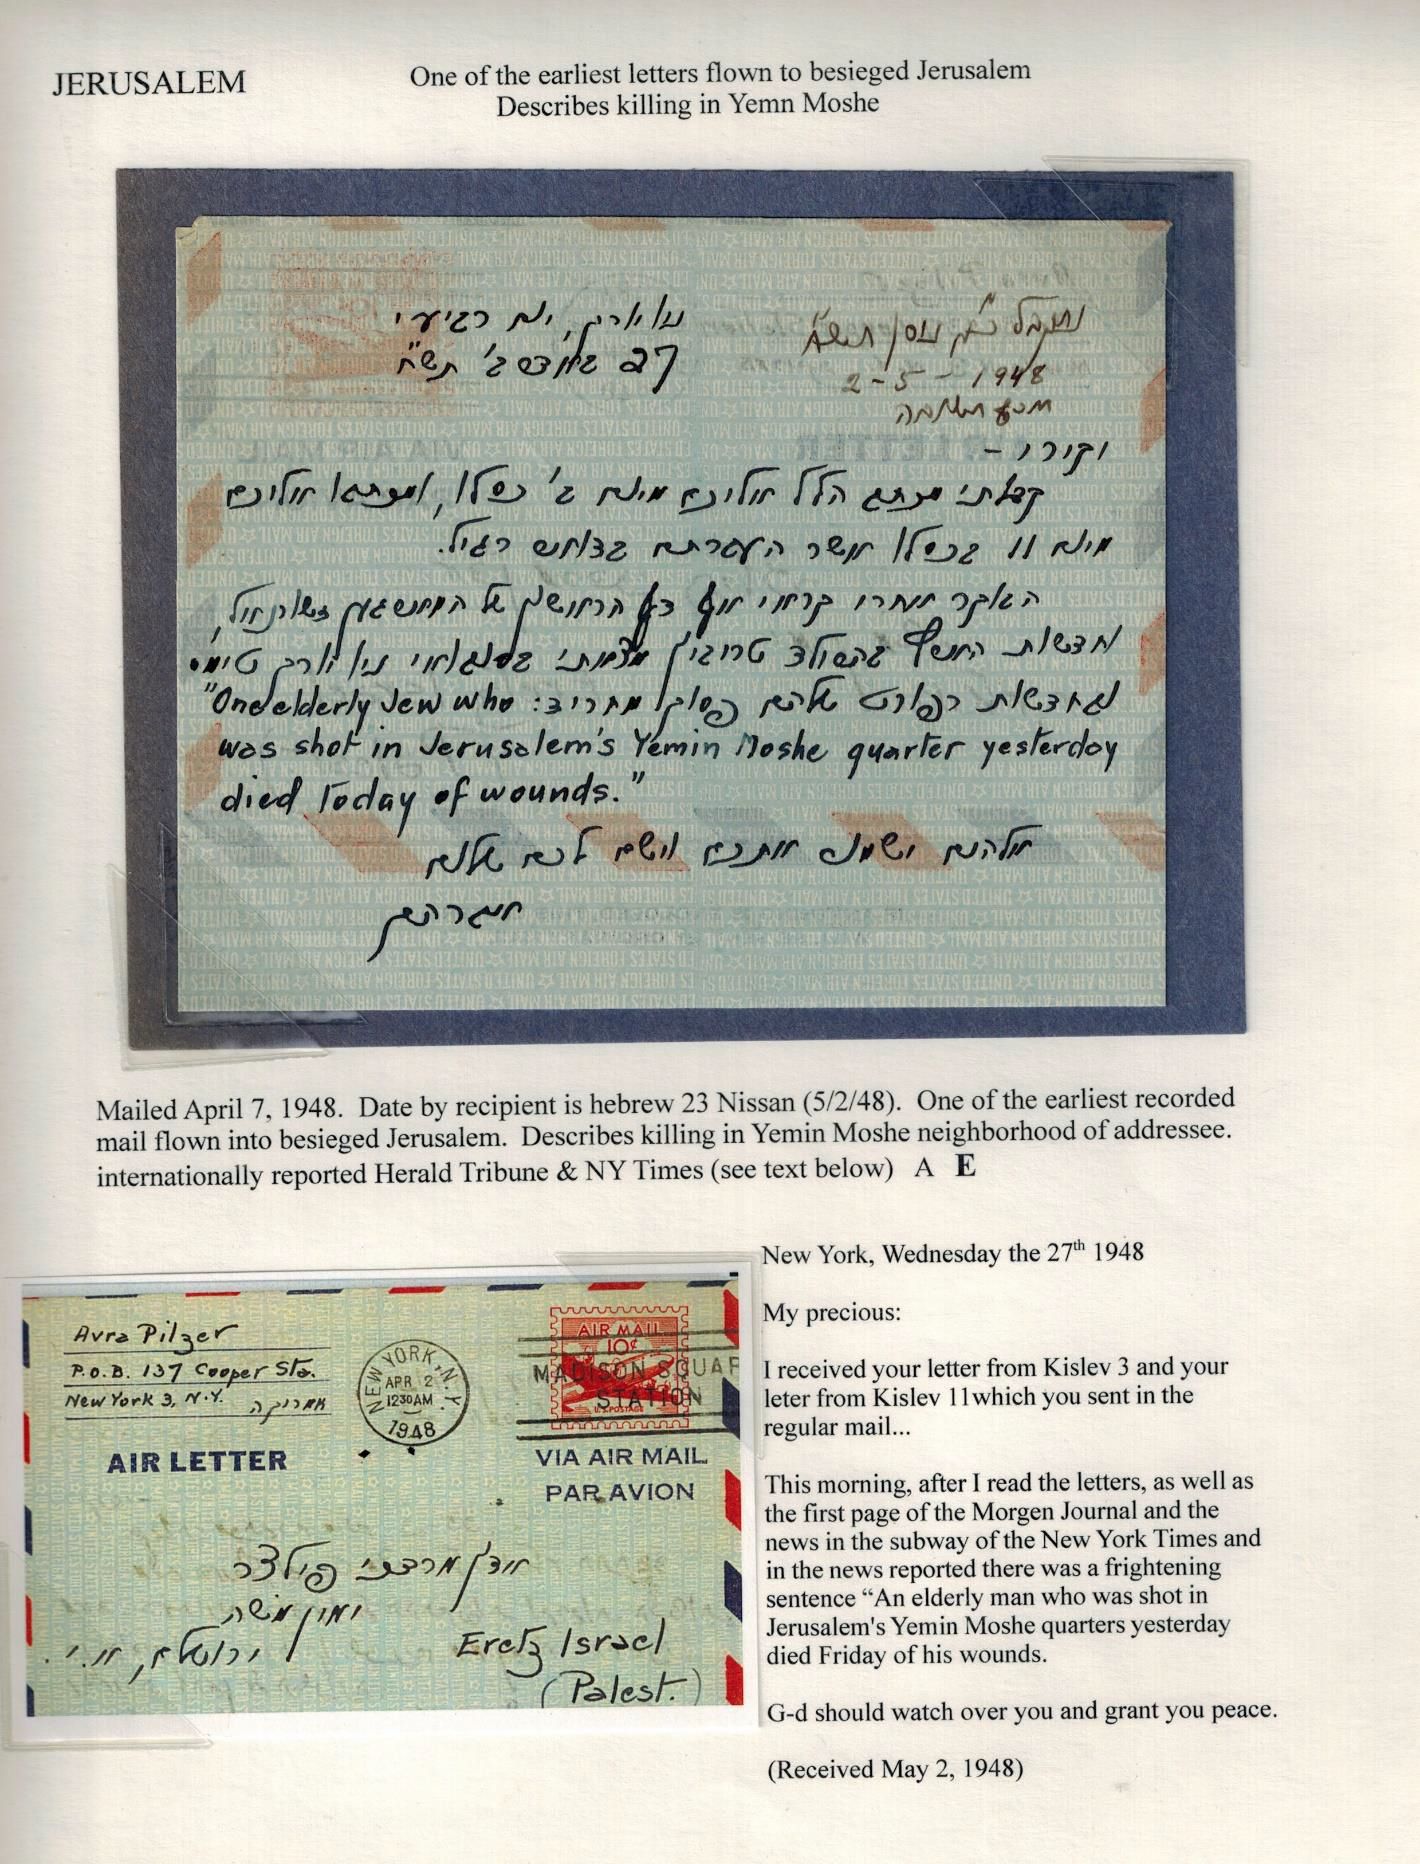 JERUSALEM
One of the earliest letters flown to besieged Jerusalem
Describes killing in Yemn Moshe
ניו יורק, יום רביעי
27 תש"ח
נתקבל ניסן תש"ח
2-5-1948
יקירי -
קבלתי מכתב אליכם מיום ג' כסלו, אליכם
מיום 11 בכסלו אשר רגיל.
הבקר אחרי קראי של
ניו יורק טיימס
פסוק מחריד: "One elderly Jew who
was shot in Jerusalem's Yemin Moshe quarter yesterday
died Today of wounds."
אלהים ישמור אתכם וישם לכם שלום
אברהם
Mailed April 7, 1948. Date by recipient is hebrew 23 Nissan (5/2/48). One of the earliest recorded
mail flown into besieged Jerusalem. Describes killing in Yemin Moshe neighborhood of addressee.
internationally reported Herald Tribune & NY Times (see text below) A E
Avra Pilzer
P.O.B. 137 Cooper Sta.
New York 3, N.Y. אמריקה
NEW YORK, N.Y.
APR 2
1230AM
1948
AIR MAIL
10¢
U.S. POSTAGE
MADISON SQUAR
STATION
AIR LETTER
VIA AIR MAIL
PAR AVION
אדון מרדכי פילצר
ימין משה
ירושלים, א.י.
Eretz Israel
(Palest.)
New York, Wednesday the 27th 1948
My precious:
I received your letter from Kislev 3 and your
leter from Kislev 11which you sent in the
regular mail...
This morning, after I read the letters, as well as
the first page of the Morgen Journal and the
news in the subway of the New York Times and
in the news reported there was a frightening
sentence “An elderly man who was shot in
Jerusalem's Yemin Moshe quarters yesterday
died Friday of his wounds.
G-d should watch over you and grant you peace.
(Received May 2, 1948)